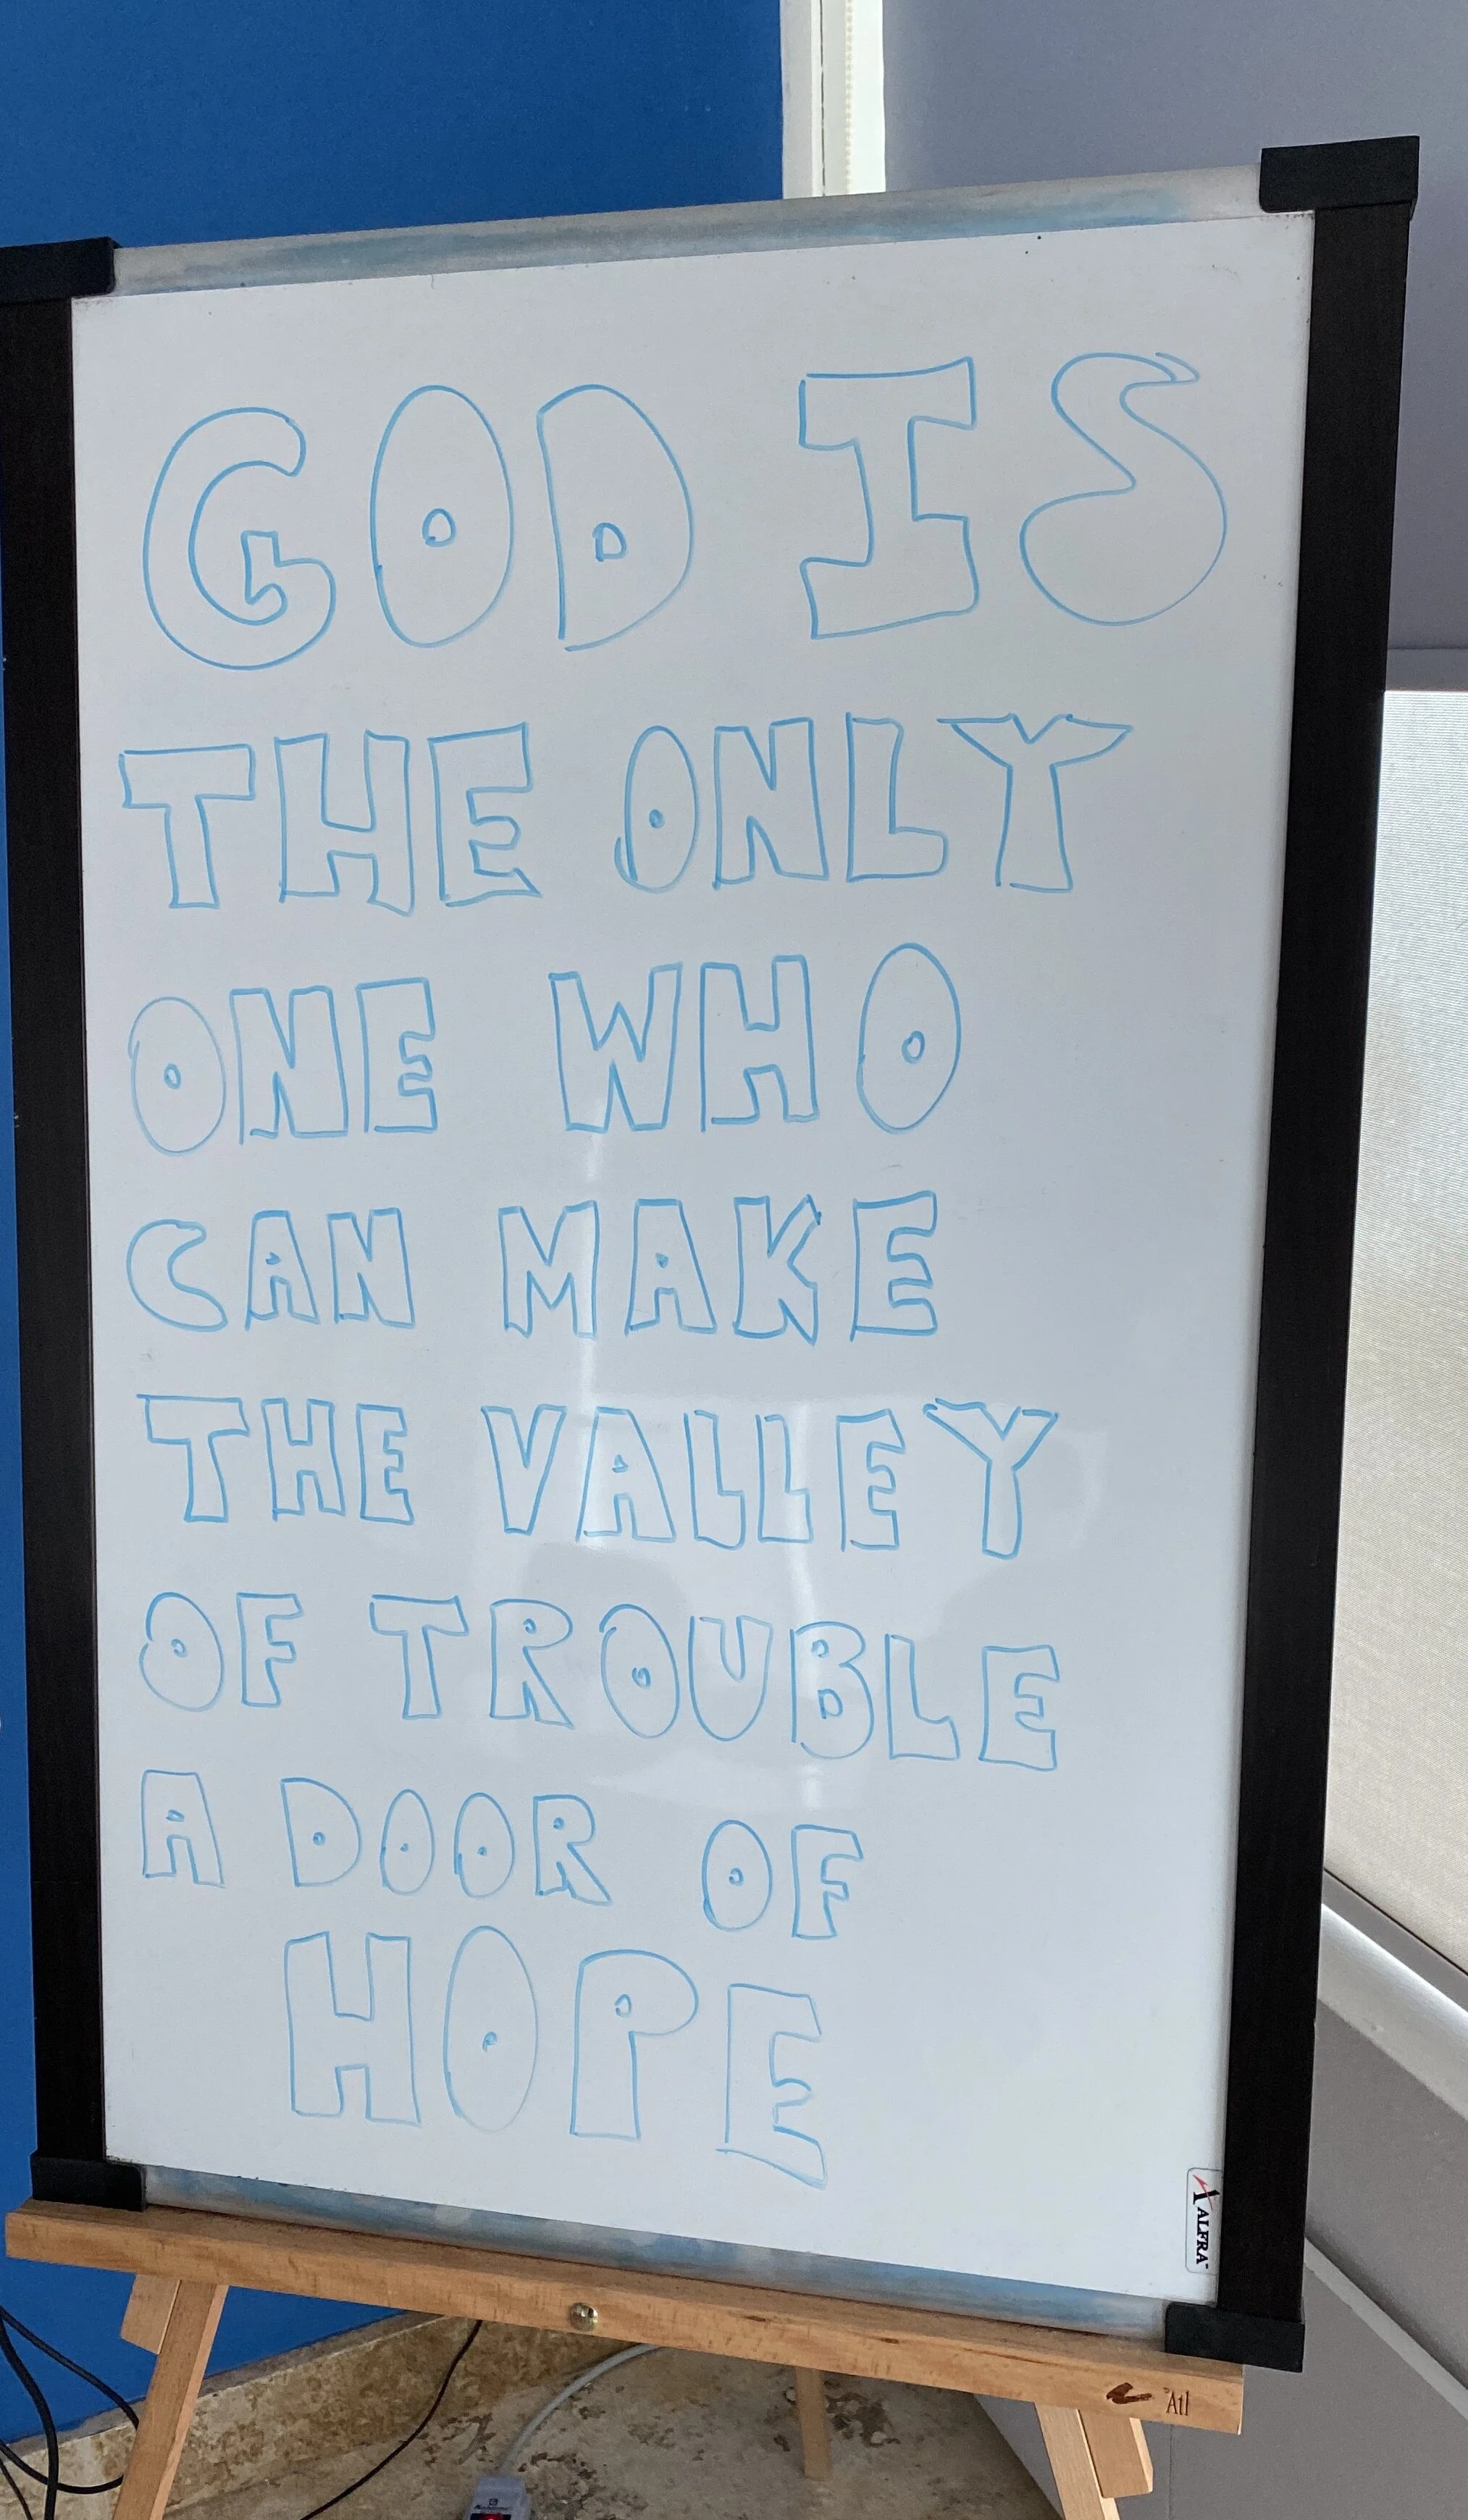 GOD IS
THE ONLY
ONE WHO
CAN MAKE
THE VALLEY
OF TROUBLE
A DOOR OF
HOPE
ALFRA
Atl